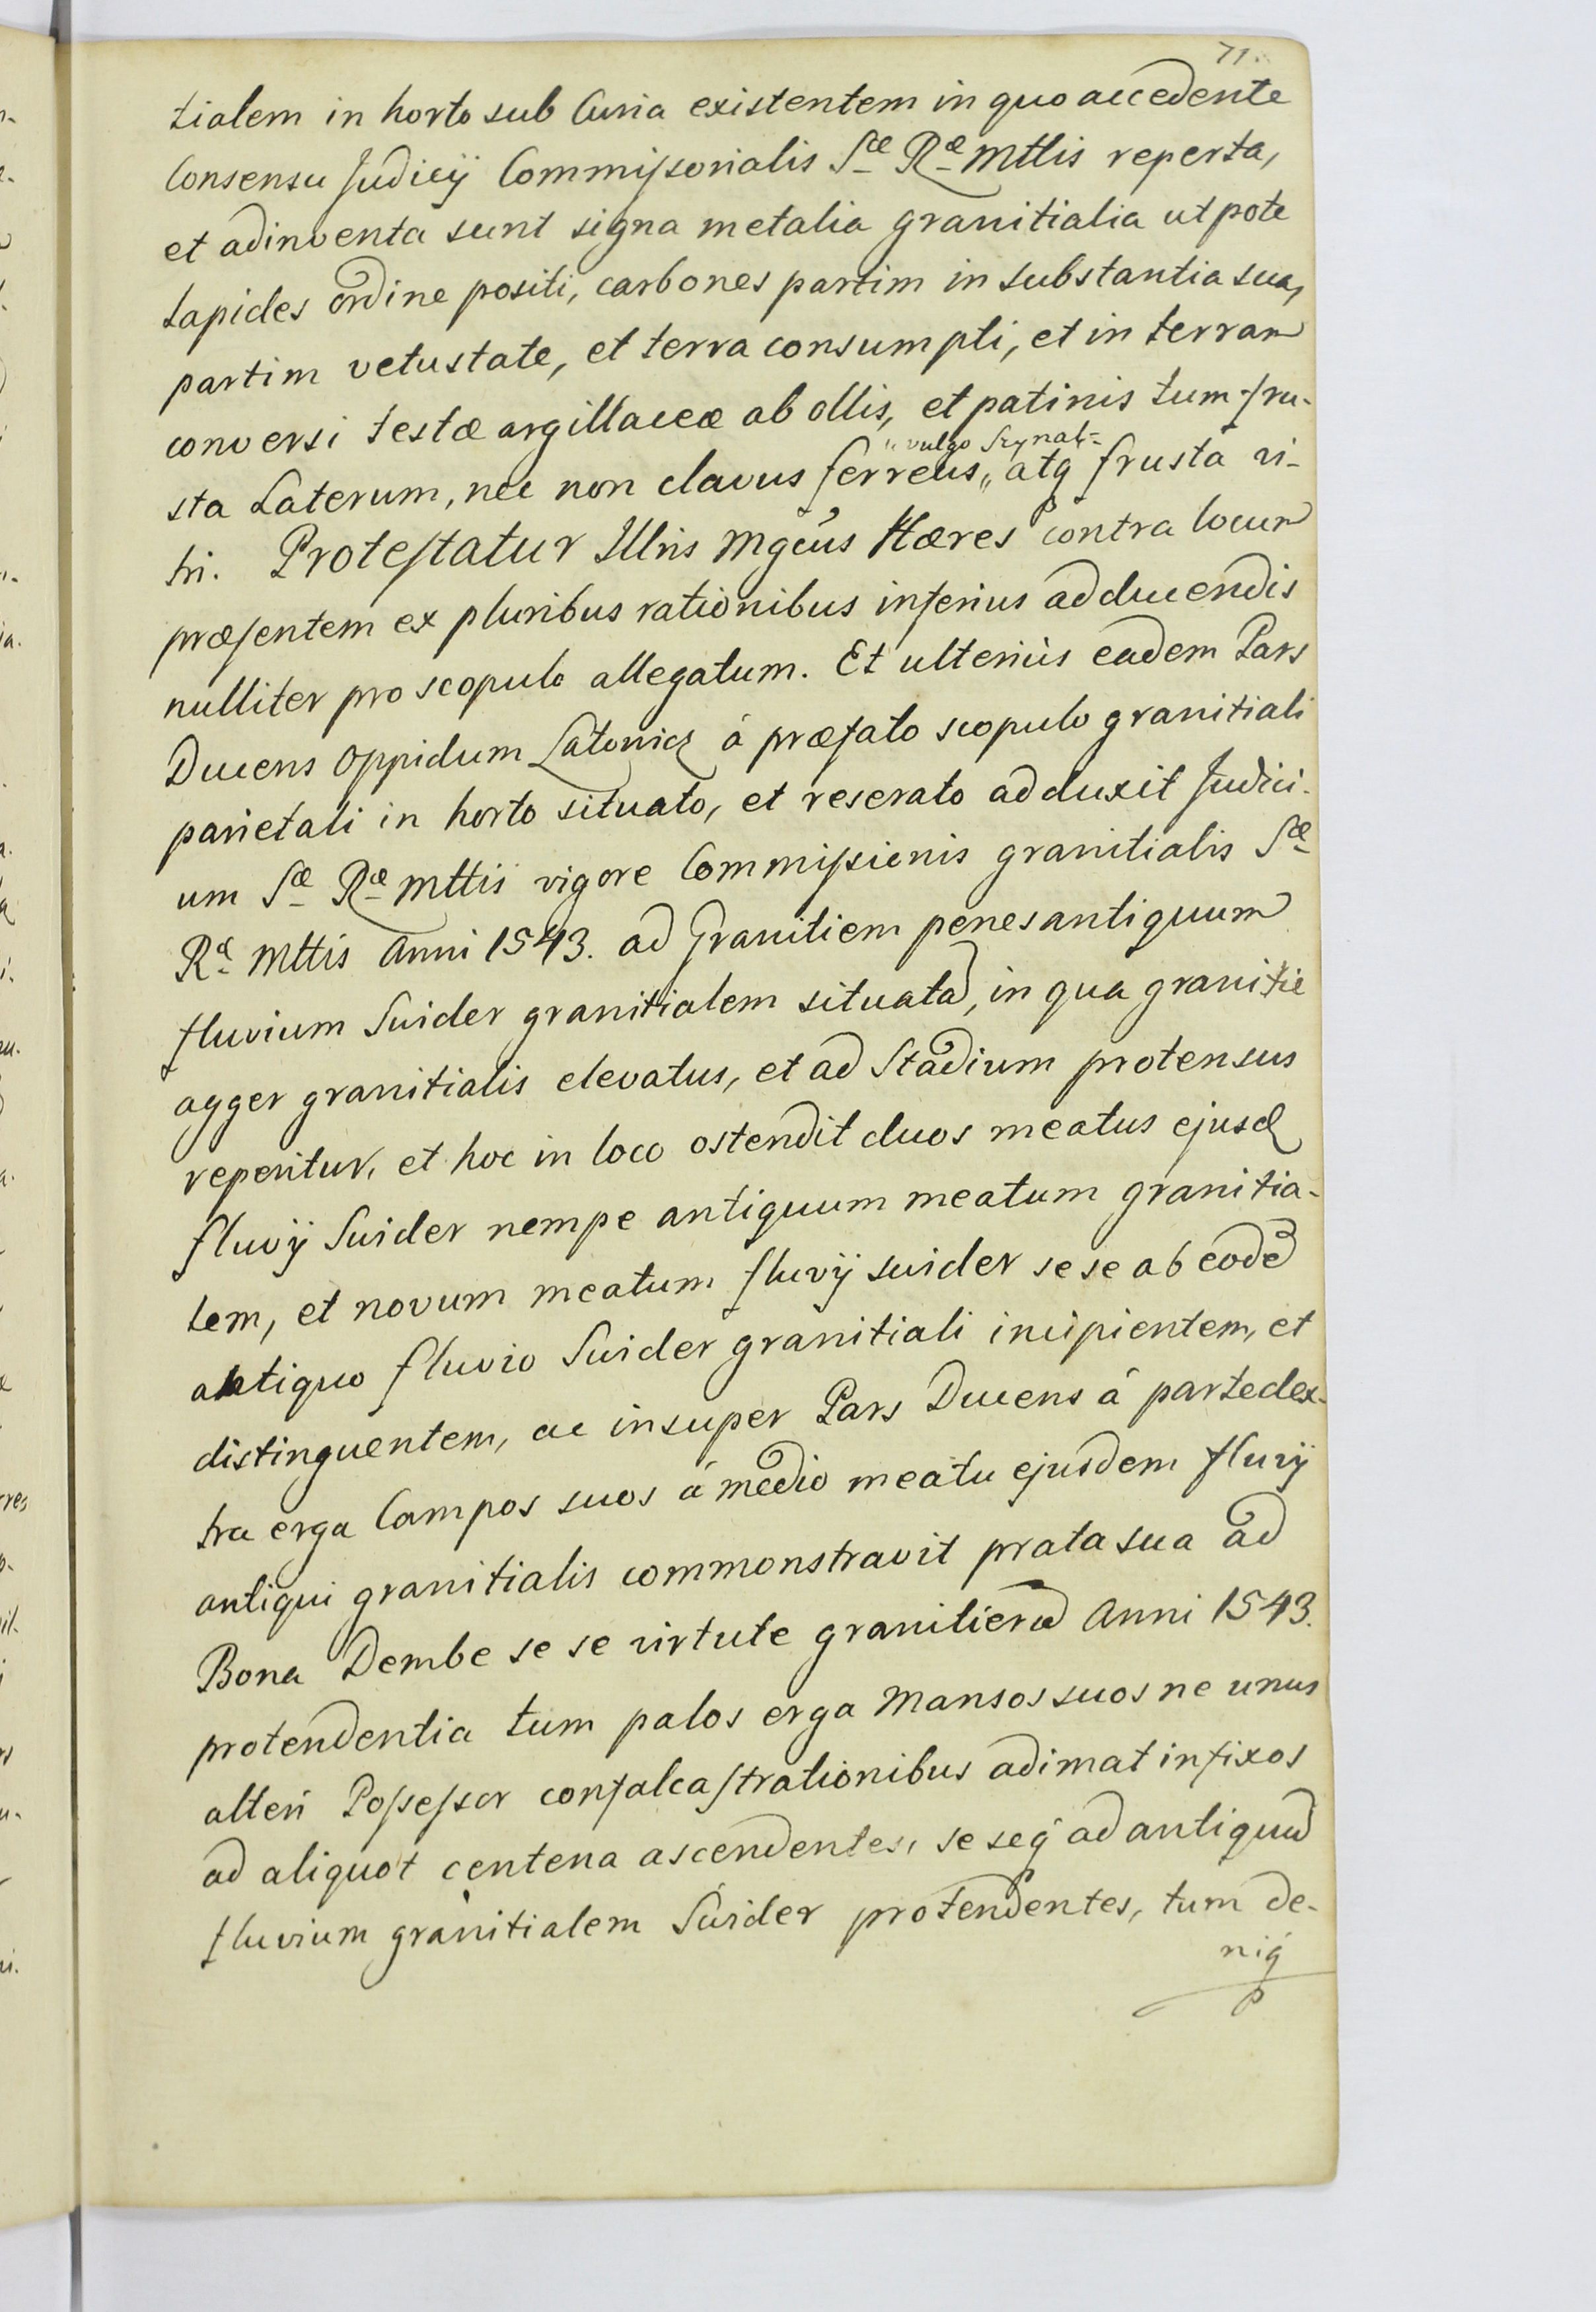 71.
tialem in horto sub Curia existentem in quo accedente
Consensu Judicij Commissorialis Sæ Ræ Mttis reperta,
et adinventa sunt signa metalia granitialia utpote
Lapides ordine positi, carbones partim in substantia sua,
partim vetustate, et terra consumpti, et in terram
conversi testæ argillaceæ ab ollis, et patinis tum fru-
„vulgo Szynal=
sta Laterum, nec non clavus ferreus„ atq frusta vi-
tri. Protestatur Illris Mgcus Hæres contra locum
præsentem ex pluribus rationibus inferius adducendis
nulliter pro scopulo allegatum. Et ulterius eadem Pars
Ducens Oppidum Latowicz á præfato scopulo granitiali
parietali in horto situato, et reserato adduxit Judici-
um Sæ Ræ Mttis vigore Commissionis granitialis Sæ
Ræ Mttis Anni 1543. ad Granitiem penes antiquum
fluvium Swider granitialem situatã, in qua granitie
agger granitialis elevatus, et ad Stadium protensus
reperitur, et hoc in loco ostendit duos meatus ejusd
fluvij Swider nempe antiquum meatum granitia-
lem, et novum meatum fluvij swider se se ab eodẽ
antiquo fluvio Swider granitiali incipientem, et
distinguentem, ac insuper Pars Ducens á parte dex-
tra erga Campos suos á medio meatu ejusdem fluvij
antiqui granitialis commonstravit prata sua ad
Bona Dembe se se virtute granitierũ Anni 1543.
protendentia tum palos erga Mansos suos ne unus
alteri Possessor confalcastrationibus adimat infixos
ad aliquot centena ascendentes, se seq ad antiquũ
fluvium granitialem Swider protendentes, tum de-
niq